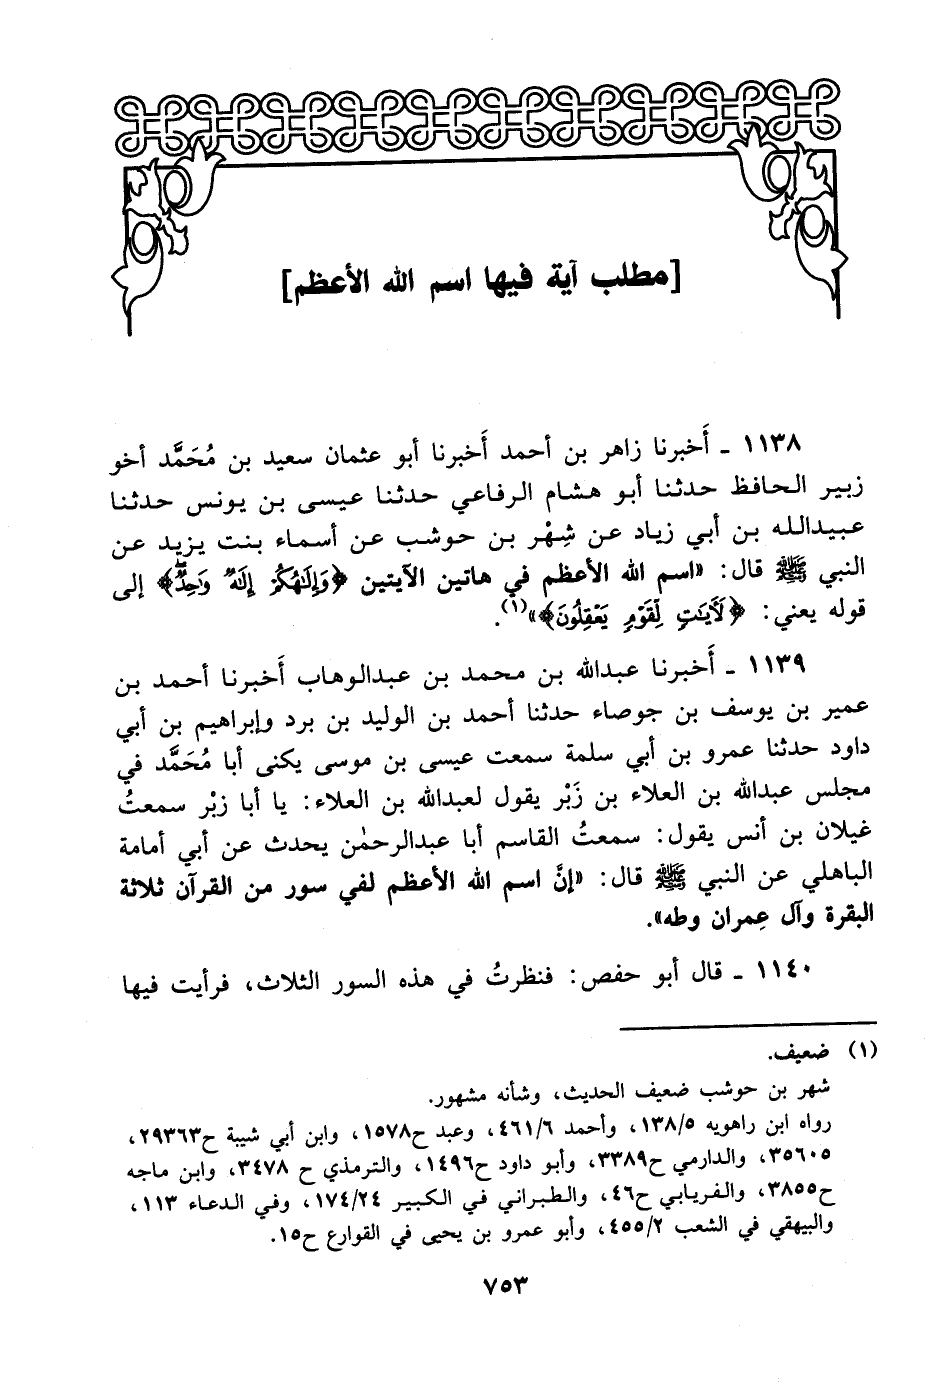 [مطلب آية فيها اسم الله الأعظم]
١١٣٨ ـ أَخبرنا زاهر بن أحمد أَخبرنا أبو عثمان سعيد بن مُحَمَّد أخو
زبير الحافظ حدثنا أبو هشام الرفاعي حدثنا عيسى بن يونس حدثنا
عبيدالله بن أبي زياد عن شِهْر بن حوشب عن أسماء بنت يزيد عن
النبي ﷺ قال: «اسم الله الأعظم في هاتين الآيتين ﴿وَإِلَٰهُكُمْ إِلَٰهٌ وَٰحِدٌۖ﴾ إلى
قوله يعني: ﴿لَأٓيَٰتٍ لِّقَوْمٍ يَعْقِلُونَ﴾»(١).
١١٣٩ ـ أَخبرنا عبدالله بن محمد بن عبدالوهاب أَخبرنا أحمد بن
عمير بن يوسف بن جوصاء حدثنا أحمد بن الوليد بن برد وإبراهيم بن أبي
داود حدثنا عمرو بن أبي سلمة سمعت عيسى بن موسى يكنى أبا مُحَمَّد في
مجلس عبدالله بن العلاء بن زَبْر يقول لعبدالله بن العلاء: يا أبا زبْر سمعتُ
غيلان بن أنس يقول: سمعتُ القاسم أبا عبدالرحمٰن يحدث عن أبي أمامة
الباهلي عن النبي ﷺ قال: «إنَّ اسم الله الأعظم لفي سور من القرآن ثلاثة
البقرة وآل عِمران وطه».
١١٤٠ ـ قال أبو حفص: فنظرتُ في هذه السور الثلاث، فرأيت فيها
(١) ضعيف.
شهر بن حوشب ضعيف الحديث، وشأنه مشهور.
رواه ابن راهويه ١٣٨/٥، وأحمد ٤٦١/٦، وعبد ح١٥٧٨، وابن أبي شيبة ح٢٩٣٦٣،
٣٥٦٠٥، والدارمي ح٣٣٨٩، وأبو داود ح١٤٩٦، والترمذي ح ٣٤٧٨، وابن ماجه
ح٣٨٥٥، والفريابي ح٤٦، والطبراني في الكبير ١٧٤/٢٤، وفي الدعاء ١١٣،
والبيهقي في الشعب ٤٥٥/٢، وأبو عمرو بن يحيى في القوارع ح١٥.
٧٥٣